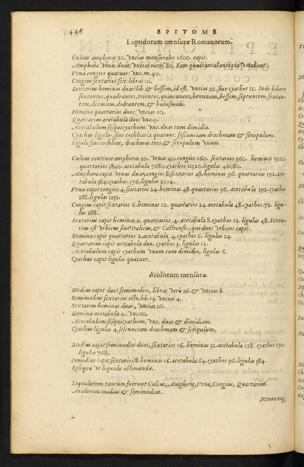 1446 EPITOME
Liquidorum mensuræ Romanorum.
Culeus amphoras 20. Vncias mensurales 1600. capit.
Amphora Vrnas duas, Vncias mens. 80. Eam quadrantal antiqui vocabant.
Vrna congios quatuor: Vnc. m. 40.
Congius sextarios sex: libras 10.
Sextarius heminas duas
sextantes, quadrantes, trientes, quincunces, heminam, bessem, septuncem, sextan-
tem, deuncem, dodrantem, &
Hemina quartarios duos: Vncias 10.
Quartarius acetabula duo: Vnc. 5.
Acetabulum sesquicyathum: Vnc. duas cum dimidia.
Cyathus ligulas siue cochlearia quatuor: sescunciam drachmam & scrupulum.
Ligula siue cochlear, drachmas tres, & scrupulum Vnum.
Culeus continet amphoras 20. Vrnas 40. congios 160. sextarios 960. heminas 1920.
quartarios 3840. acetabula 7680. cyathos 11520. ligulas 46080.
Amphora capit Vrnas duas, congios 8. sextarios 48. heminas 96. quartarios 192. ace-
tabula 384. cyathos 576. ligulas 2304.
Vrna capit congios 4. sextarios 24. heminas 48. quartarios 96. acetabula 192. cyathos
288. ligulas 1152.
Congius capit sextarios 6. heminas 12. quartarios 24. acetabula 48. cyathos 72. ligu-
las 288.
Sextarius capit heminas 2. quartarios 4. acetabula 8. cyathos 12. ligulas 48. Sexta-
rium est Vrbicus siue Italicus, & Castrensis, qui duos Vrbicos capit.
Hemina capit quartarios 2. acetabula 4. cyathos 6. ligulas 24.
Quartarius capit acetabula duo. cyathos 3. ligulas 12.
Acetabulum capit cyathum Vnum cum dimidio, ligulas 6.
Cyathus capit ligulas quatuor.
Aridorum mensuræ.
Modius capit duos semimodios, libras Verò 26. & Vncias 8.
Semimodius sextarios octo, lib. 13. Vncias 4.
Sextarius heminas duas, Vnc. 20.
Hemina acetabula 4. Vnc. 10.
Acetabulum sesquicyathum; Vnc. duas & dimidiam.
Cyathus ligulas 4. sescunciam drachmam & scripulum.
Modius capit semimodios duos, sextarios 16. heminas 32. acetabula 128. cyathos 192.
ligulas 768.
Semodius capit sextarios 8. heminas 16. acetabula 64. cyathos 96. ligulas 384.
Reliqua Vt liquida æstimanda.
Liquidorum tantum fuerunt Culeus, Amphora, Vrna, Congius, Quartarius.
Aridorum modius & semimodius.